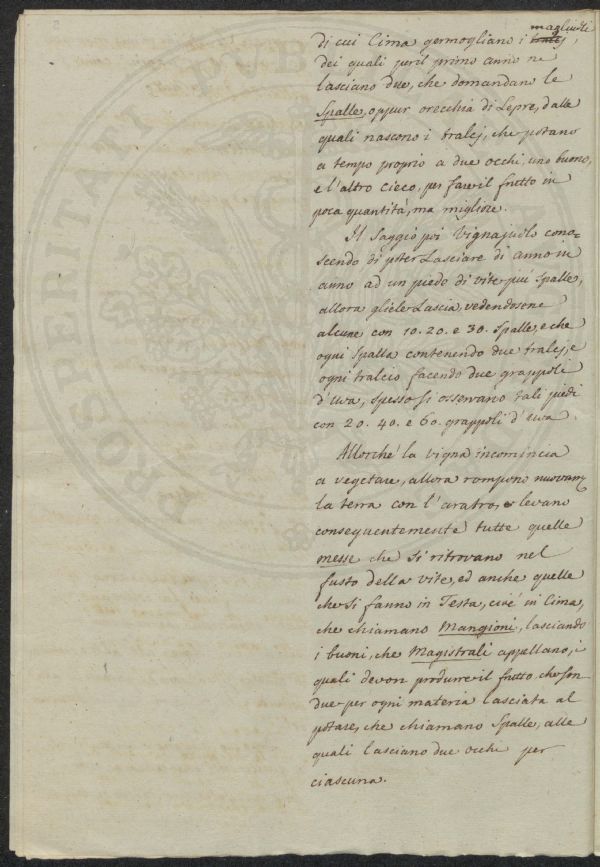 magliuoli
di cui Cima germogliano i tralcj,
dei quali pur il primo anno ne
lasciano due, che domandano le
Spalle, oppur orecchia di Lepre, dalle
quali nascono i tralcj, che potano
a tempo proprio a due occhi, uno buono,
e l'altro cieco, per fare il frutto in
poca quantità, ma migliore.
Il Saggio poi Vignajuolo cono=
scendo di poter Lasciare di anno in
anno ad un piede di vite più Spalle,
allora gliele Lascia, vedendosene
alcune con 10. 20. e 30. Spalle, e che
ogni Spalla contenendo due tralcj, e
ogni tralcio facendo due grappoli
d'uva, spesso si osservano tali piedi
con 20. 40. e 60. grappoli d'uva.
Allorché la vigna incomincia
a vegetare, allora rompono nuovam.
la terra con l'aratro, e levano
consequentemente tutte quelle
messe che si ritrovano nel
fusto della vite, ed anche quelle
che si fanno in Testa, cioè in Cima,
che chiamano Mangioni, lasciando
i buoni, che Magistrali appellano, i
quali devon produrre il frutto, che son
due per ogni materia lasciata al
potare, che chiamano Spalle, alle
quali lasciano due occhi per
ciascuna.